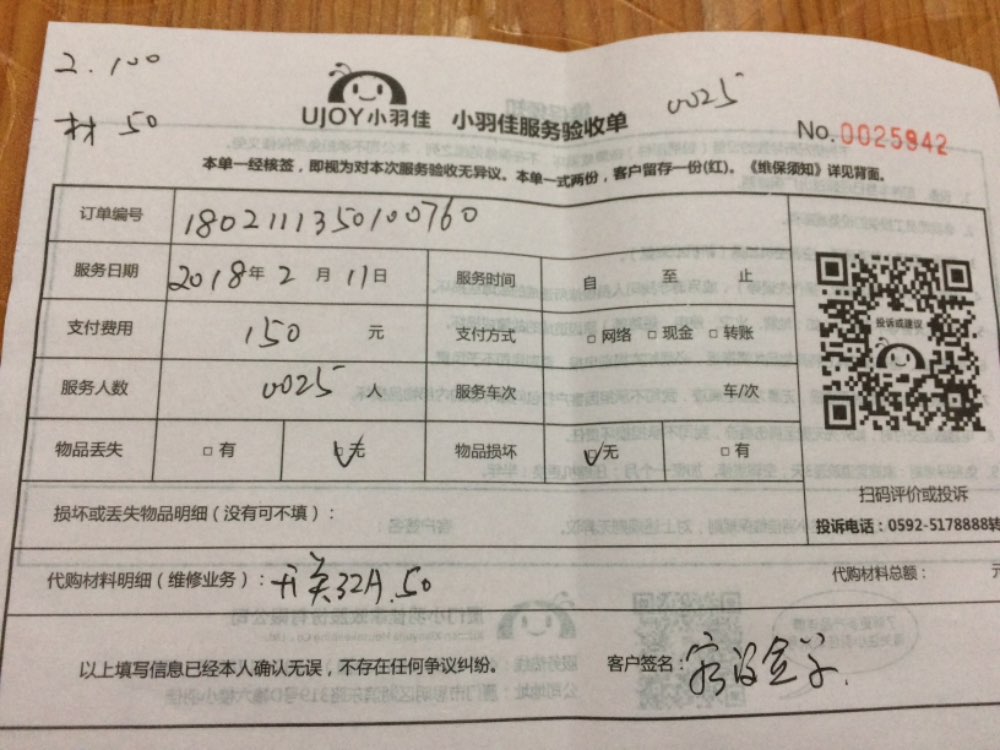 工.100
材 50
UJOY小羽佳 小羽佳服务验收单
0025
No.0025942
本单一经核签，即视为对本次服务验收无异议。本单一式两份，客户留存一份(红)。《维保须知》详见背面。
订单编号 1802111350100760
服务日期 2018年 2 月 11日 服务时间 自 至 止
支付费用 150 元 支付方式 □网络 □现金 □转账
服务人数 0025 人 服务车次 车/次
物品丢失 □有 □无 物品损坏 □无 □有
投诉或建议
扫码评价或投诉
投诉电话：0592-5178888转
损坏或丢失物品明细（没有可不填）：
代购材料明细（维修业务）：开关32A.50 代购材料总额： 元
以上填写信息已经本人确认无误，不存在任何争议纠纷。 客户签名：